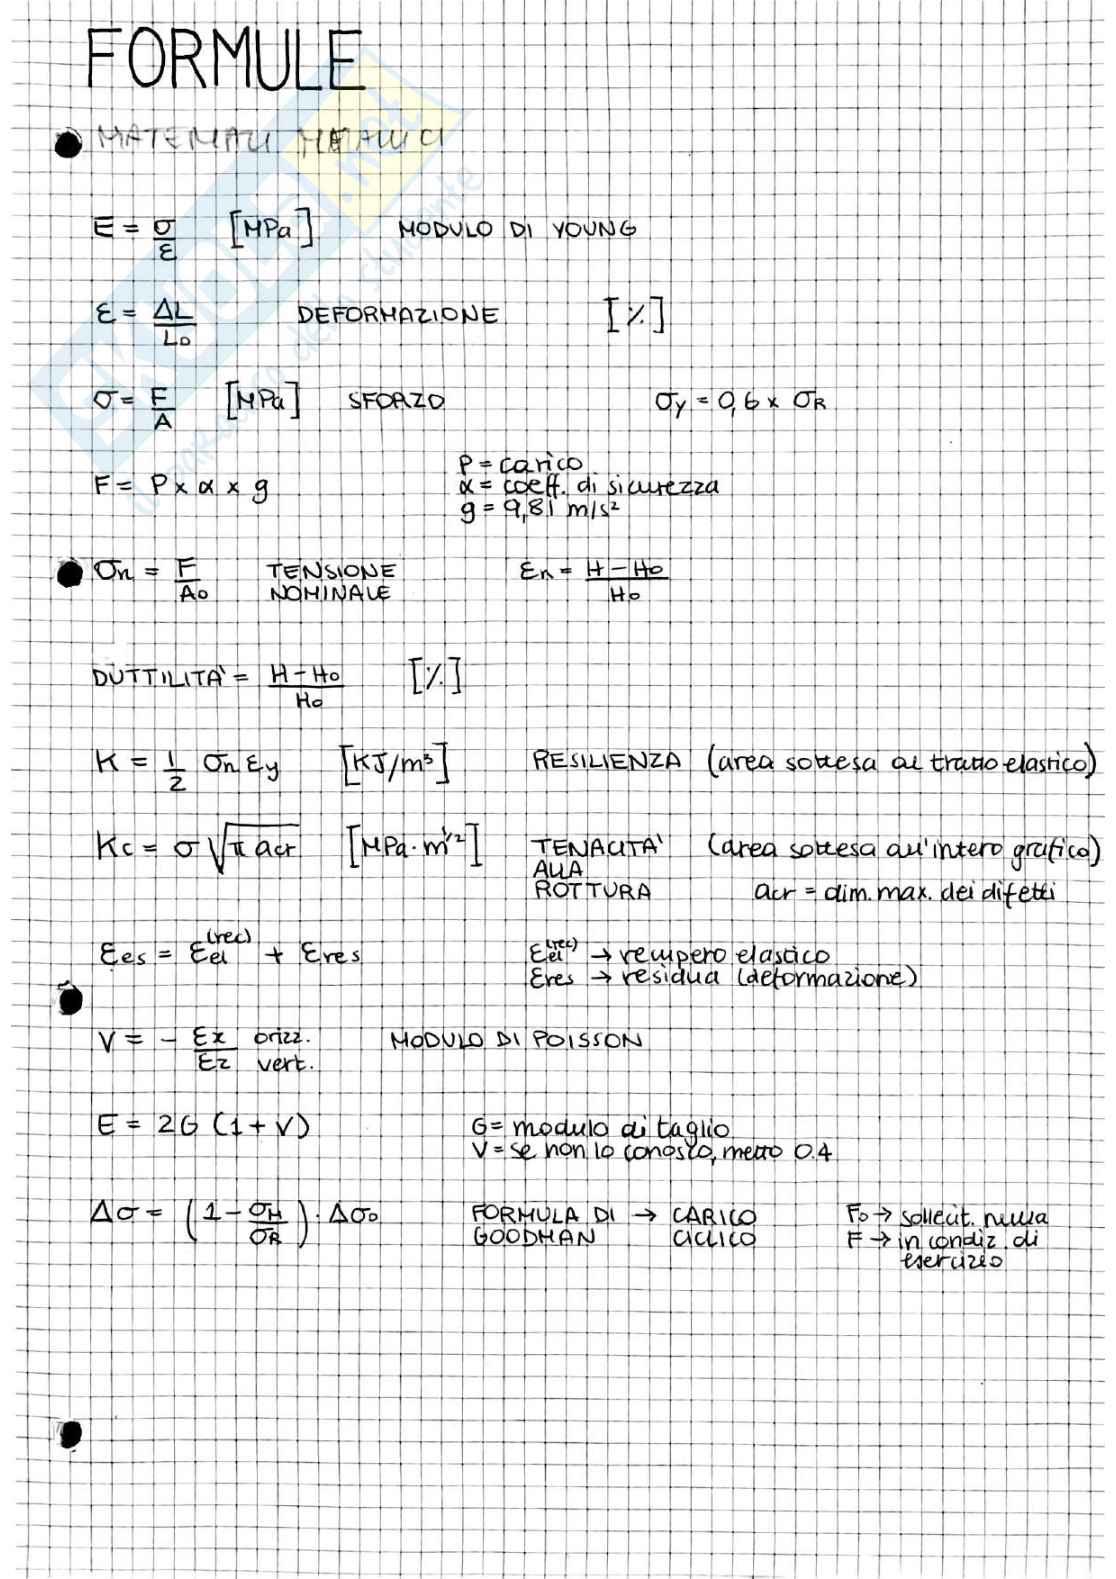 FORMULE
MATERIALI METALLICI
E = σ/ε [MPa] MODULO DI YOUNG
ε = ΔL/L₀ DEFORMAZIONE [%]
σ = F/A [MPa] SFORZO σy = 0,6 x σR
F = P x α x g P = carico
α = coeff. di sicurezza
g = 9,81 m/s²
σn = F/A₀ TENSIONE NOMINALE εn = H-H₀/H₀
DUTTILITA' = H-H₀/H₀ [%]
K = 1/2 σn εy [KJ/m³] RESILIENZA (area sottesa al tratto elastico)
Kc = σ √π acr [MPa·m^1/2] TENACITA' (area sottesa all'intero grafico)
ALLA
ROTTURA acr = dim. max. dei difetti
εes = εel^(rec) + εres εel^(rec) → recupero elastico
εres → residua (deformazione)
V = - εx/εz orizz. vert. MODULO DI POISSON
E = 2G (1+V) G = modulo di taglio
V = se non lo conosco, metto 0.4
Δσ = (1 - σM/σR) · Δσ₀ FORMULA DI → CARICO F₀ → sollecit. nulla
GOODMAN CICLICO F → in condiz. di
esercizio
SKUOLA.net
il paradiso dello studente